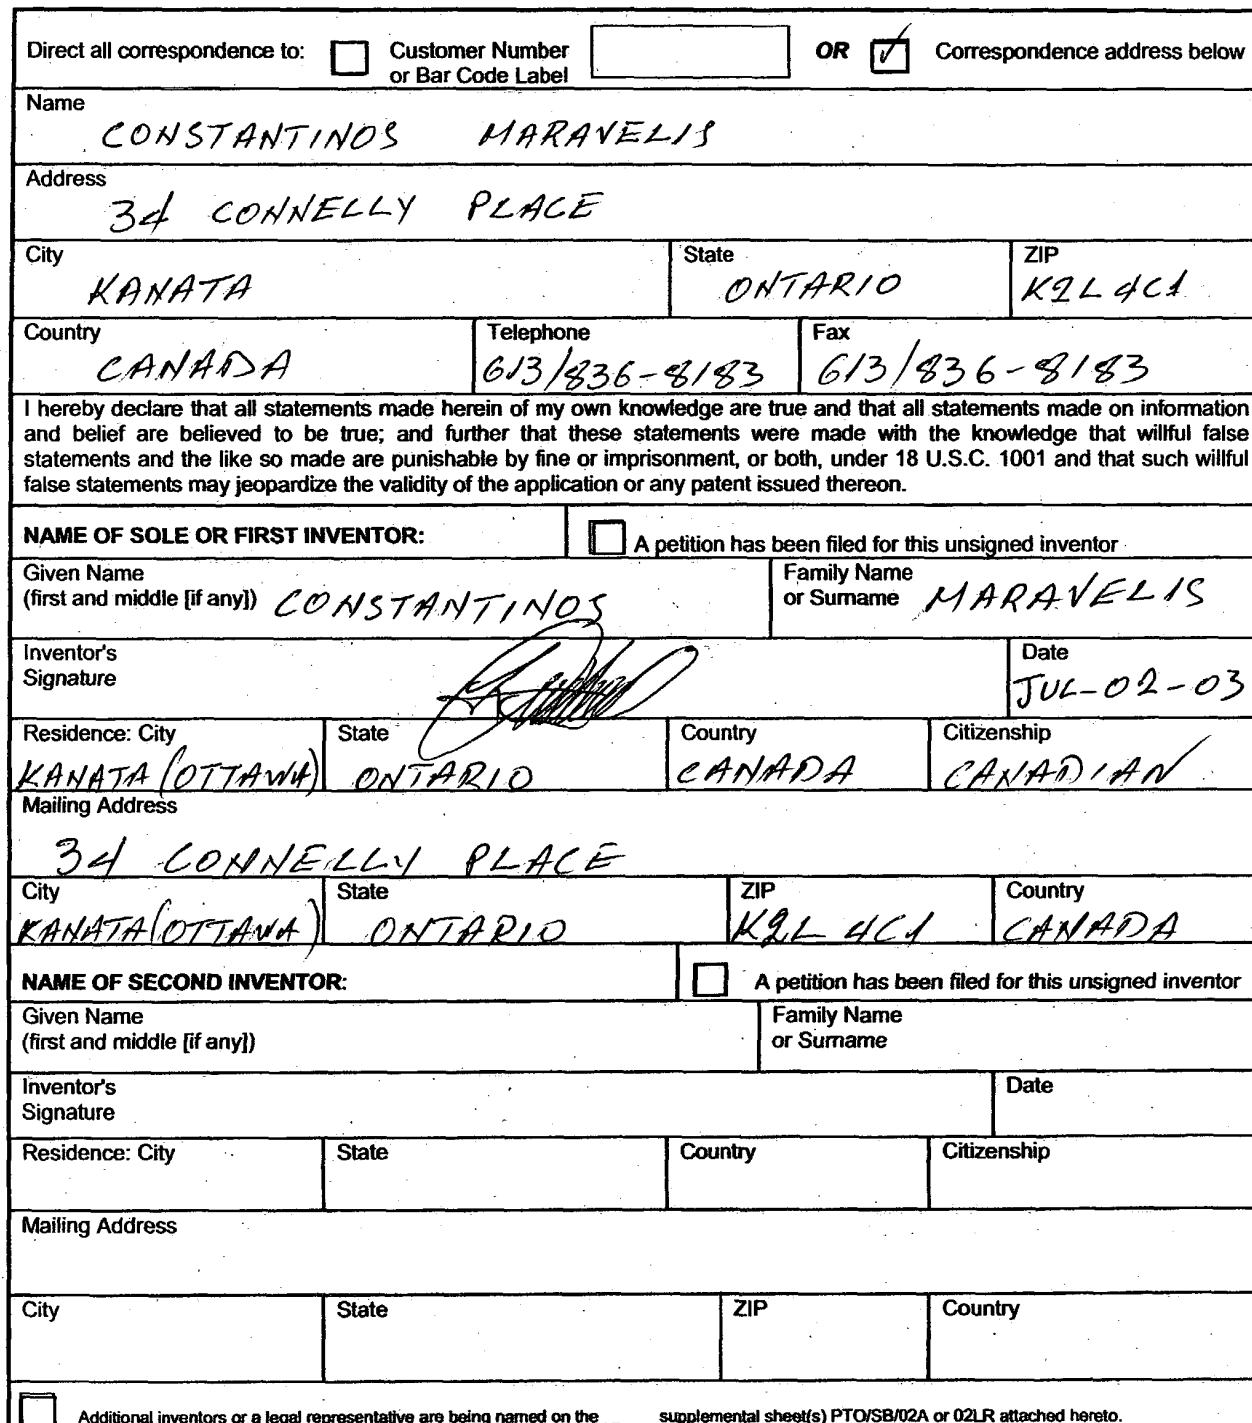 Direct all correspondence to: Customer Number or Bar Code Label OR ✓ Correspondence address below
Name
CONSTANTINOS MARAVELIS
Address
34 CONNELLY PLACE
City State ZIP
KANATA ONTARIO K2L 4C1
Country Telephone Fax
CANADA 613/836-8183 613/836-8183
I hereby declare that all statements made herein of my own knowledge are true and that all statements made on information
and belief are believed to be true; and further that these statements were made with the knowledge that willful false
statements and the like so made are punishable by fine or imprisonment, or both, under 18 U.S.C. 1001 and that such willful
false statements may jeopardize the validity of the application or any patent issued thereon.
NAME OF SOLE OR FIRST INVENTOR: A petition has been filed for this unsigned inventor
Given Name
(first and middle [if any]) CONSTANTINOS
Family Name
or Surname MARAVELIS
Inventor's
Signature
Date
JUL-02-03
Residence: City State Country Citizenship
KANATA (OTTAWA) ONTARIO CANADA CANADIAN
Mailing Address
34 CONNELLY PLACE
City State ZIP Country
KANATA (OTTAWA) ONTARIO K2L 4C1 CANADA
NAME OF SECOND INVENTOR: A petition has been filed for this unsigned inventor
Given Name
(first and middle [if any])
Family Name
or Surname
Inventor's
Signature
Date
Residence: City State Country Citizenship
Mailing Address
City State ZIP Country
Additional inventors or a legal representative are being named on the supplemental sheet(s) PTO/SB/02A or 02LR attached hereto.